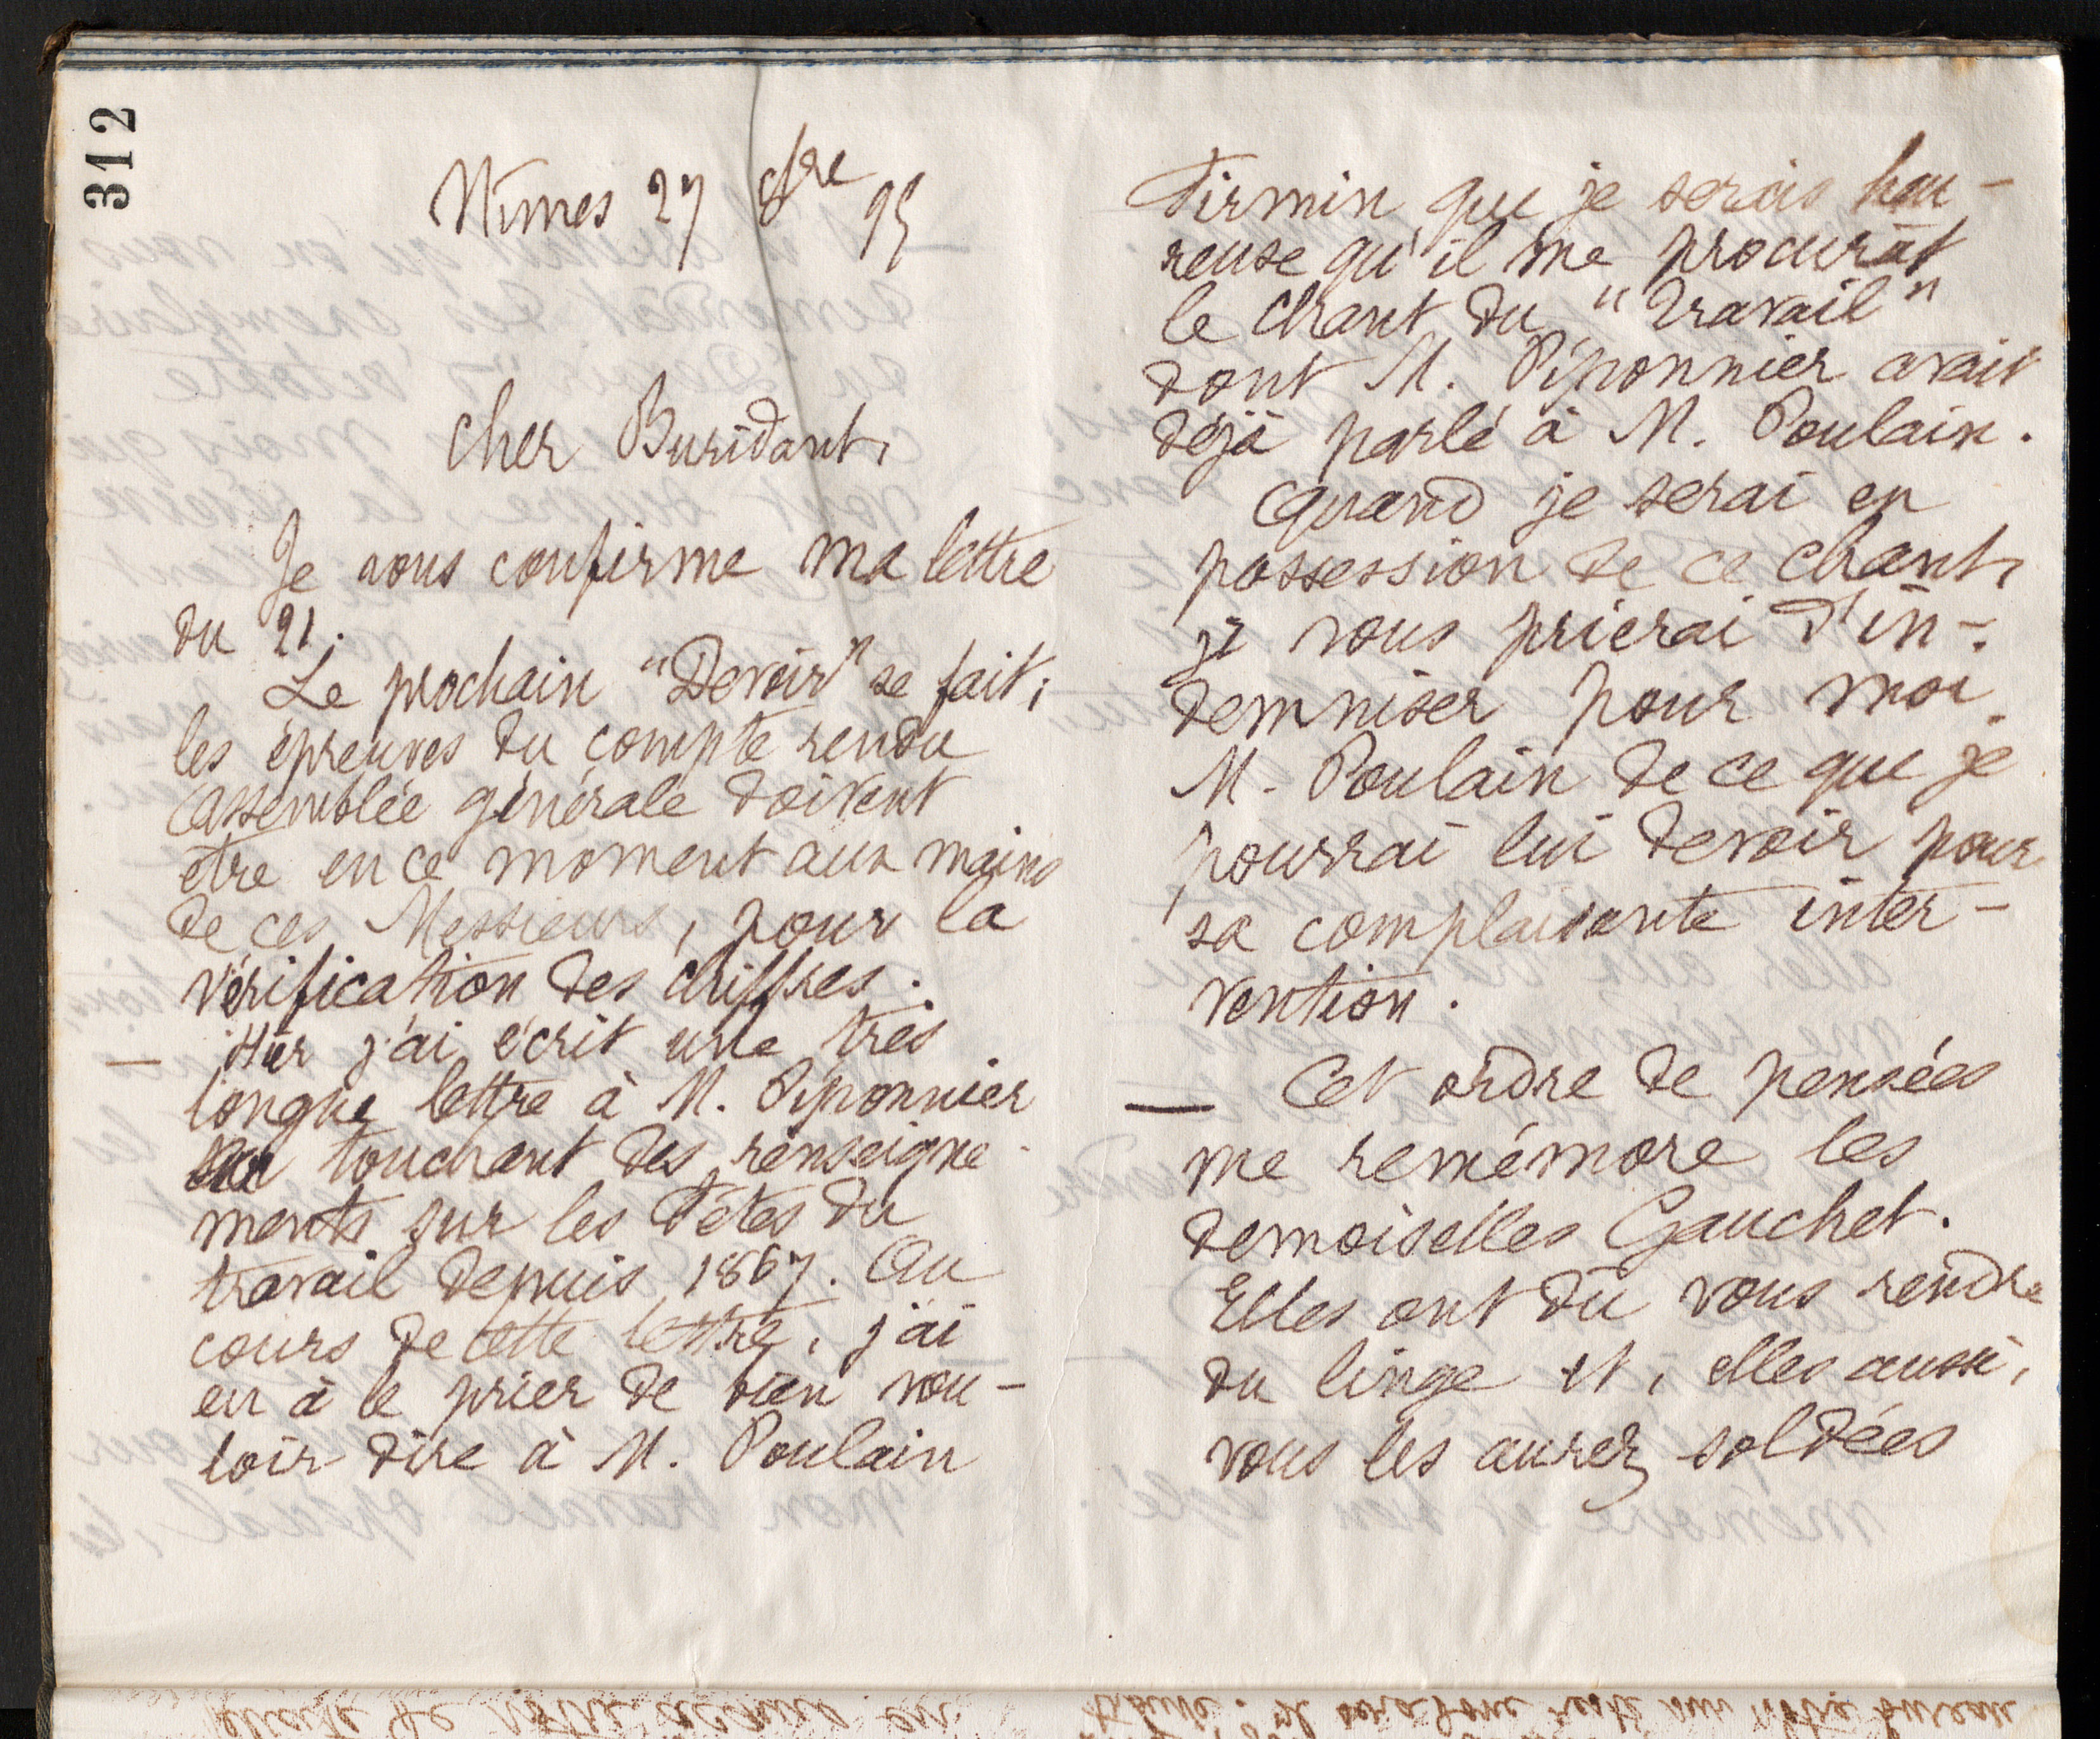 312
Nîmes 27 8bre 95
Cher Buridant,
Je vous confirme ma lettre
du 21.
Le prochain "Devoir" se fait;
les épreuves du compte rendu
Assemblée générale doivent
être en ce moment aux mains
de ces Messieurs, pour la
vérification des chiffres.
— Hier j'ai écrit une très
longue lettre à M. Piponnier
touchant des renseigne-
ments sur les Fêtes du
travail depuis 1867. Au
cours de cette lettre, j'ai
eu à le prier de bien vou-
loir dire à M. Poulain
Firmin que je serais heu-
reuse qu'il me procurât
le chant du "Travail"
dont M. Piponnier avait
déjà parlé à M. Poulain.
Quand je serai en
possession de ce chant,
je vous prierai d'in-
demniser pour moi
M. Poulain de ce que je
pourrai lui devoir pour
sa complaisante inter-
vention.
— Cet ordre de pensées
me remémore les
demoiselles Gauchet.
Elles ont dû vous rendre
du linge et, elles aussi,
vous les aurez soldées